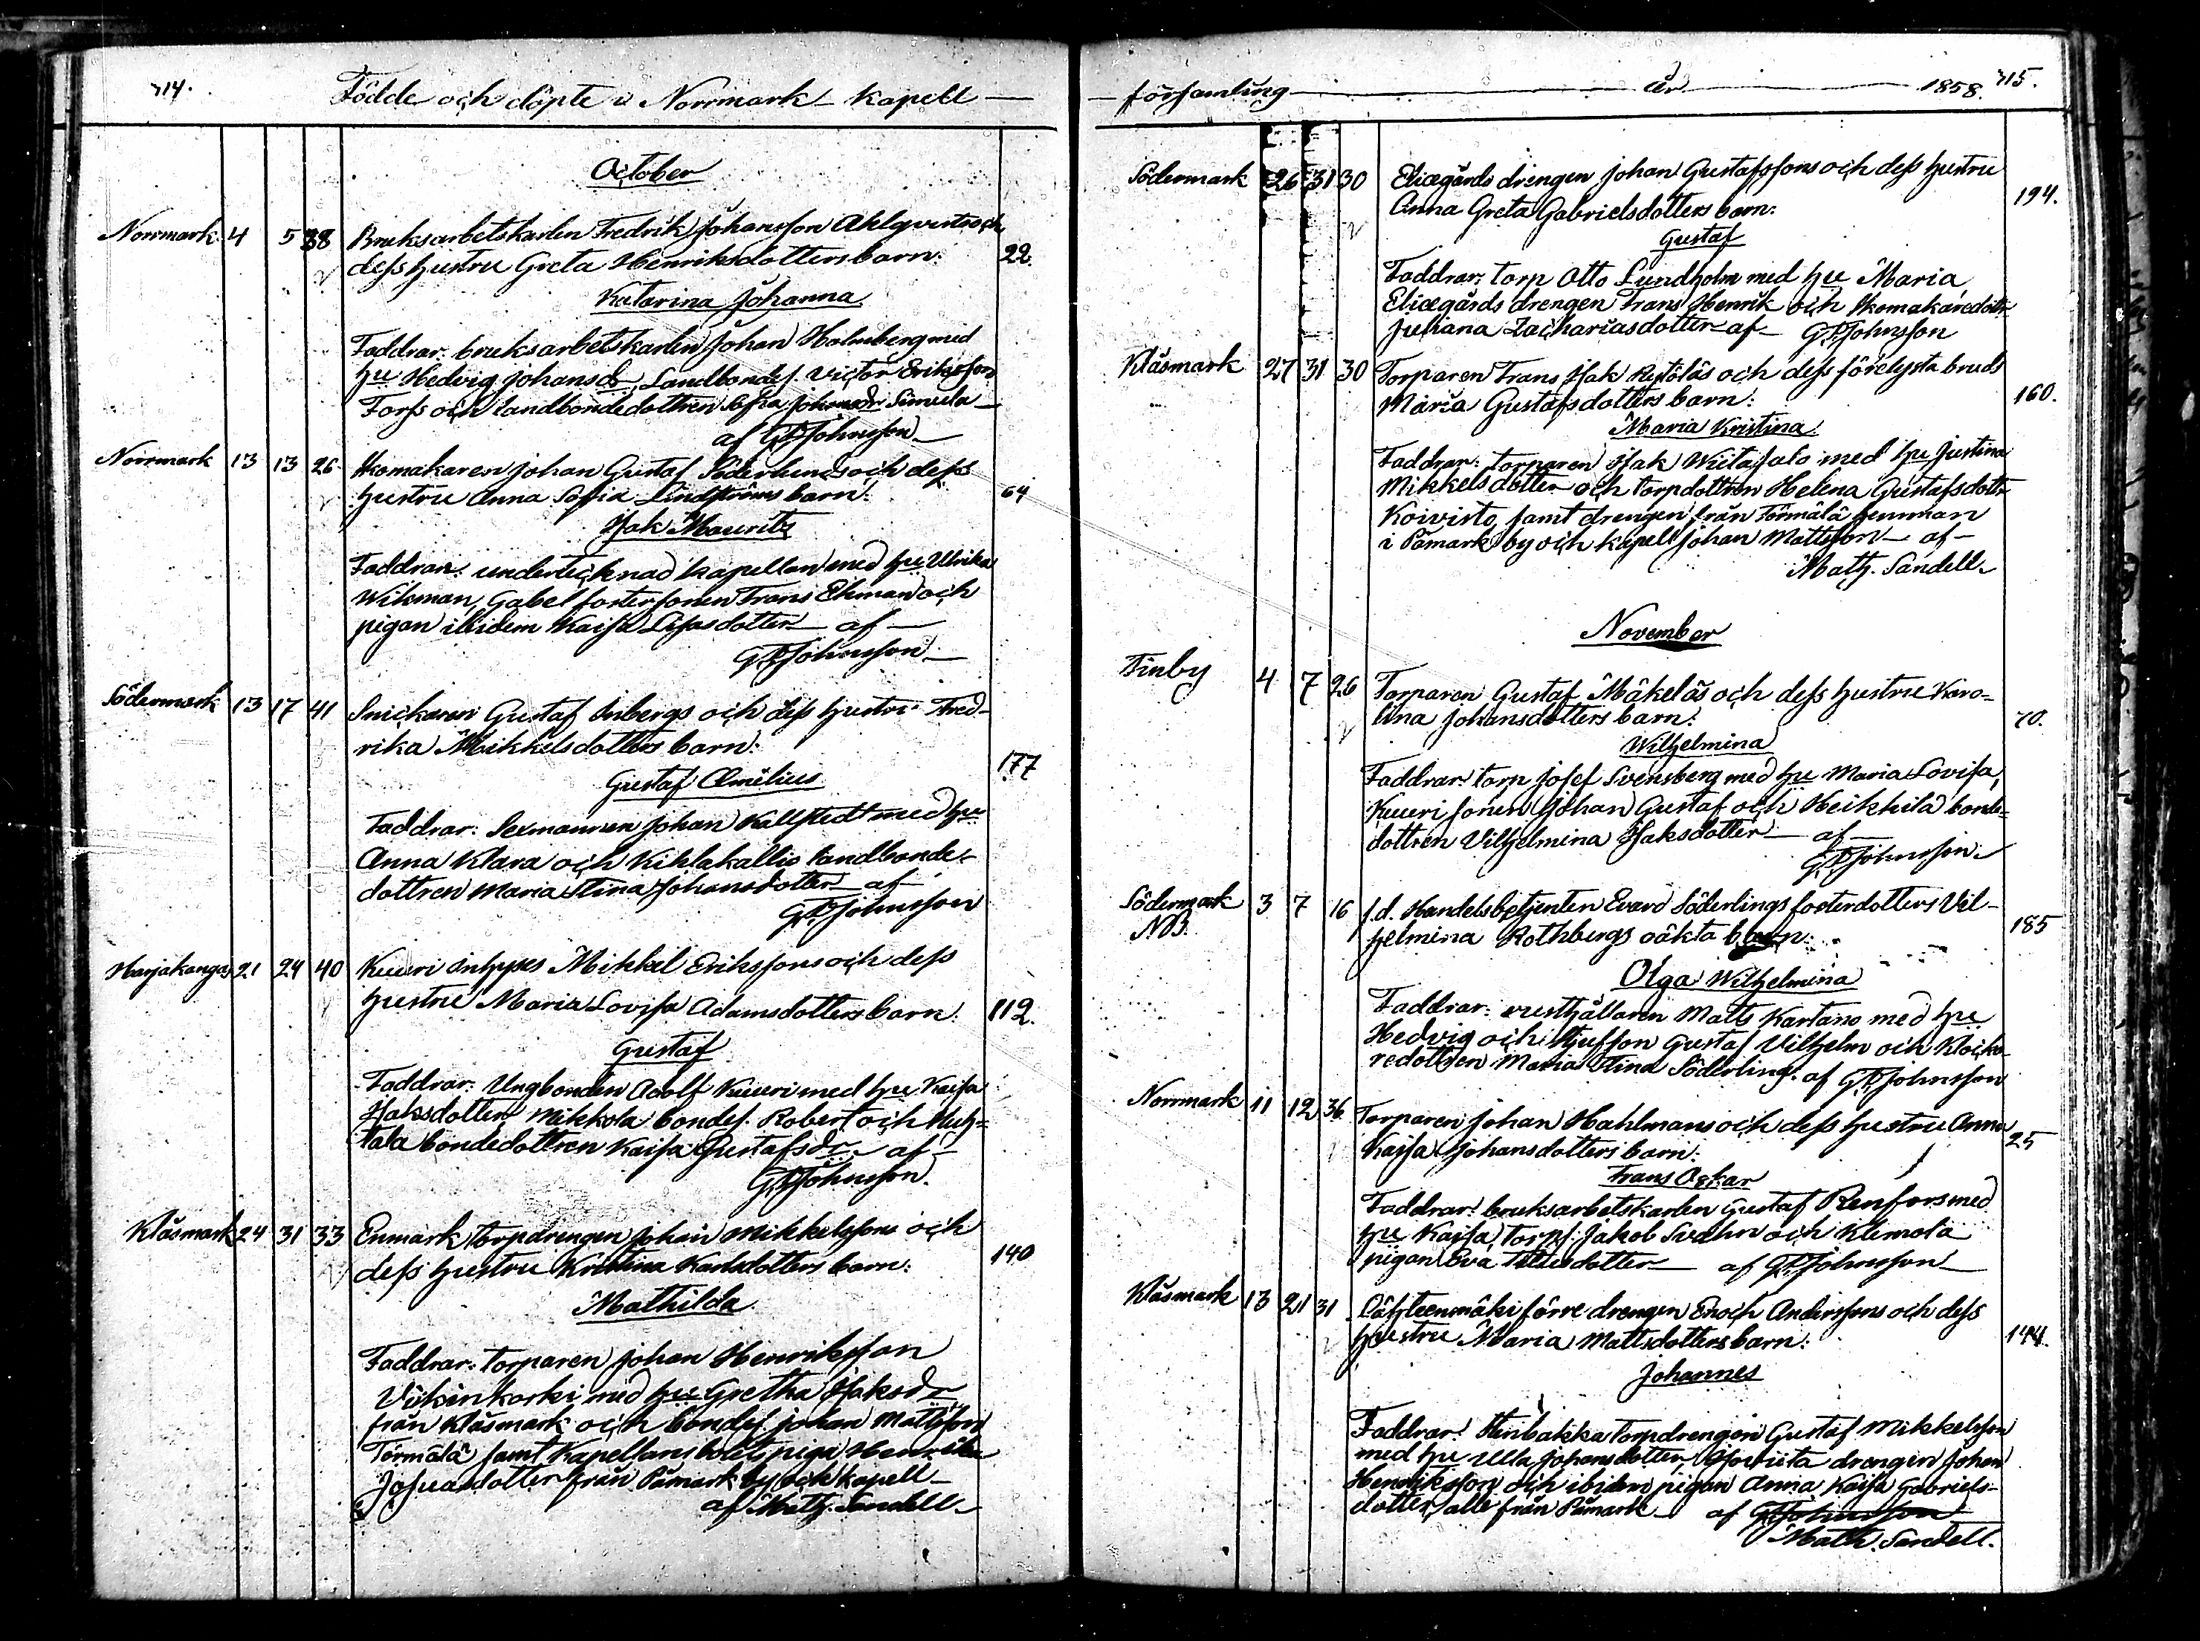 714.
Födde och döpte i Norrmark kapell
October
Norrmark 4 5 38 Bruksarbetskarlen Fredrik Johansson Ahlqvists och
dess hustru Greta Henriksdotters barn: 22.
Katarina Johanna
Faddrar: bruksarbetskarlen Johan Holmberg med
hu Hedvig Johansdr, Landbondes. Victor Eriksson
Torfs och Landbondedottren Sofia Johansdr Simula
af G.P.Johnsson
Norrmark 13 13 26 Skomakaren Johan Gustaf Söderlunds och dess
hustru Anna Sofia Lindströms barn: 64
Isak Maurits
Faddrar: undertecknad kapellan med hu Ulrika
Wikman, Gabel fostersonen Frans Ekman och
pigan ibidem Kaisa Esasdotter af
G.P.Johnsson
Södermark 13 17 41 Snickaren Gustaf Inbergs och dess hustru Fred-
rika Mikkelsdotters barn: 177
Gustaf Æmilius
Faddrar: Sexmannen Johan Kallstedt med hu
Anna Klara och Kihlakallio landbonde-
dottren Maria Stina Johansdotter af
G.P.Johnsson
Harjakangas 21 24 40 Kuuri inhyses Mikkel Erikssons och dess
hustru Maria Lovisa Adamsdotters barn: 112.
Gustaf
Faddrar: Ungbonden Adolf Kuuri med hu Kaisa
Isaksdotter Mikkola bondes. Robert och Huh-
tala bondedottren Kaisa Gustafsdr af
G.P.Johnsson.
Klåsmark 24 31 33 Enmark torpdrengen Johan Mikkelssons och
dess hustru Kristina Karlsdotters barn: 140
Mathilda
Faddrar: torparen Johan Henriksson
Viikinkoski med hu Gretha Isaksdr
från Klåsmark och bondes. Johan Mattsson
Törmälä samt Kapellans bols piga Henrika
Josuasdotter från Påmark by och kapell
af Math. Sandell
församling år 1858. 715.
Södermark 26 31 30 Eliægårds drengen Johan Gustafssons och dess hustru
Anna Greta Gabrielsdotters barn: 194.
Gustaf
Faddrar: torp Otto Lundholm med hu Maria,
Eliægårds drengen Frans Henrik och Skomakaredottr
Juliana Zachariasdotter af G.P.Johnsson
Klåsmark 27 31 30 Torparen Frans Isak Rystöläs och dess förelysta bruds
Maria Gustafsdotters barn: 160.
Maria Kristina
Faddrar: torparen Isak Wiitasalo med hu Justina
Mikkelsdotter och torpdottren Helena Gustafsdottr
Koivisto, samt drengen från Törmälä hemman
i Påmark by och kapell Johan Mattsson af
Math. Sandell
November
Finby 4 7 26 Torparen Gustaf Mäkeläs och dess hustru Karo-
lina Johansdotters barn: 70.
Wilhelmina
Faddrar: torp Josef Svensberg med hu Maria Lovisa,
Kuuri sonen Johan Gustaf och Heikkilä bonde-
dottren Vilhelmina Isaksdotter af
G.P.Johnsson
Södermark 3 7 16 f.d. Handelsbetjenten Evard Söderlings fosterdotters Vil-
NB. helmina Rothbergs oäkta barn: 185
Olga Wilhelmina
Faddrar: rusthållaren Matts Kartano med hu
Hedvig och Stufson Gustaf Vilhelm och Klocka-
redottren Maria Stina Söderling. af G.P.Johnsson
Norrmark 11 12 36 Torparen Johan Hahlmans och dess hustru Anna
Kaisa Johansdotters barn: 25
Frans Oskar
Faddrar: bruksarbetskarlen Gustaf Renfors med
hu Kaisa, torps. Jakob Svahn och Klemola
pigan Eva af G.P.Johnsson
Klåsmark 13 21 31 Lähteenmäki förre drengen Enoch Anderssons och dess
hustru Maria Mattsdotters barn: 144.
Johannes
Faddrar: torpdrengen Gustaf Mikkelsson
med hu Ulla Johansdotter, drengen Johan
Henriksson och ibidem pigan Anna Kaisa Gabriels-
dotter, alla från Påmark af G.P.Johnsson
Math. Sandell.